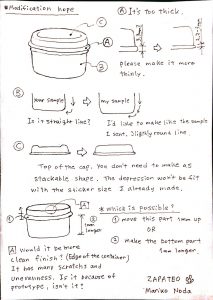 *Modification hope
Ⓐ It's too thick.
Ⓒ
Ⓐ
Ⓑ
please make it more
thinly.
Ⓑ
your sample
my sample
Is it straight line?
I'd like to make like the sample
I sent. Slightly round line.
Ⓒ
Top of the cap. You don't need to make as
stackable shape. The depression won't be fit
with the sticker size I already made.
* Which is possible?
① move this part 1mm up
OR
② Make the bottom part
1mm longer.
①
②
1mm
longer
A
A Would it be more
clean finish? (Edge of the container)
It has many scratchs and
unevenness. Is it because of
prototype, isn't it?
ZAPATEO
Mariko Noda